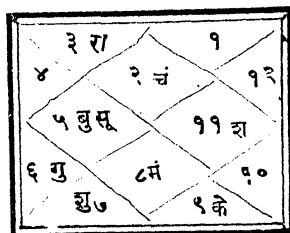 ३ रा १
४ २ चं १२
५ बु सू ११ श
६ गु ८ मं १०
शु ७ ९ के